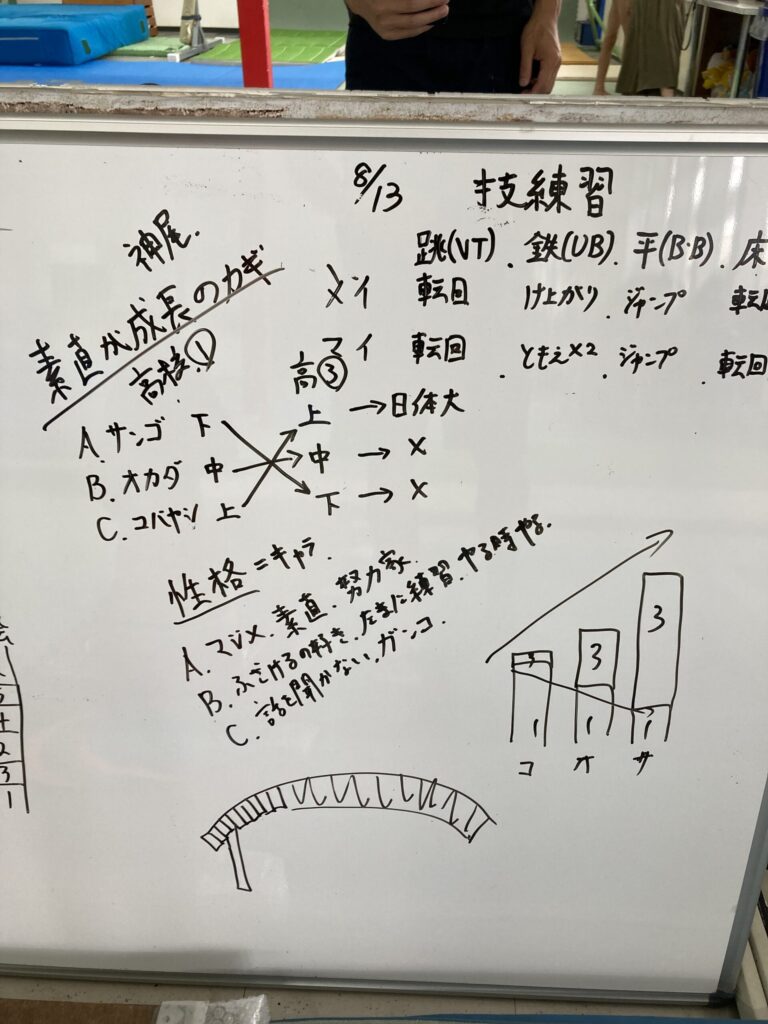 8/13 技練習
跳(VT). 鉄(UB). 平(B・B). 床
メイ 転回 け上がり. ジャンプ 転回
マイ 転回 ともえ×2. ジャンプ . 転回
神尾.
素直が成長のカギ
高校① 高③
A. サンゴ 下 上 → 日体大
B. オカダ 中 中 → ×
C. コバヤシ 上 下 → ×
性格 = キャラ.
A. マジメ. 素直. 努力家.
B. ふざけるの好き. たまに練習. やる時やる.
C. 話を聞かない. ガンコ.
3 3 3
1 1 1
コ オ サ
2
3
1